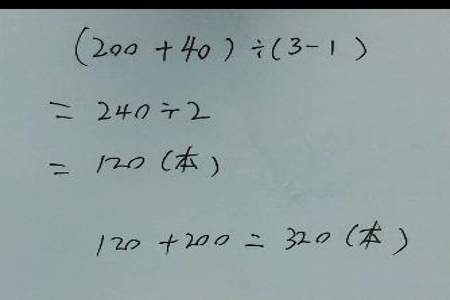 (200+40)÷(3-1)
=240÷2
=120(本)
120+200=320(本)